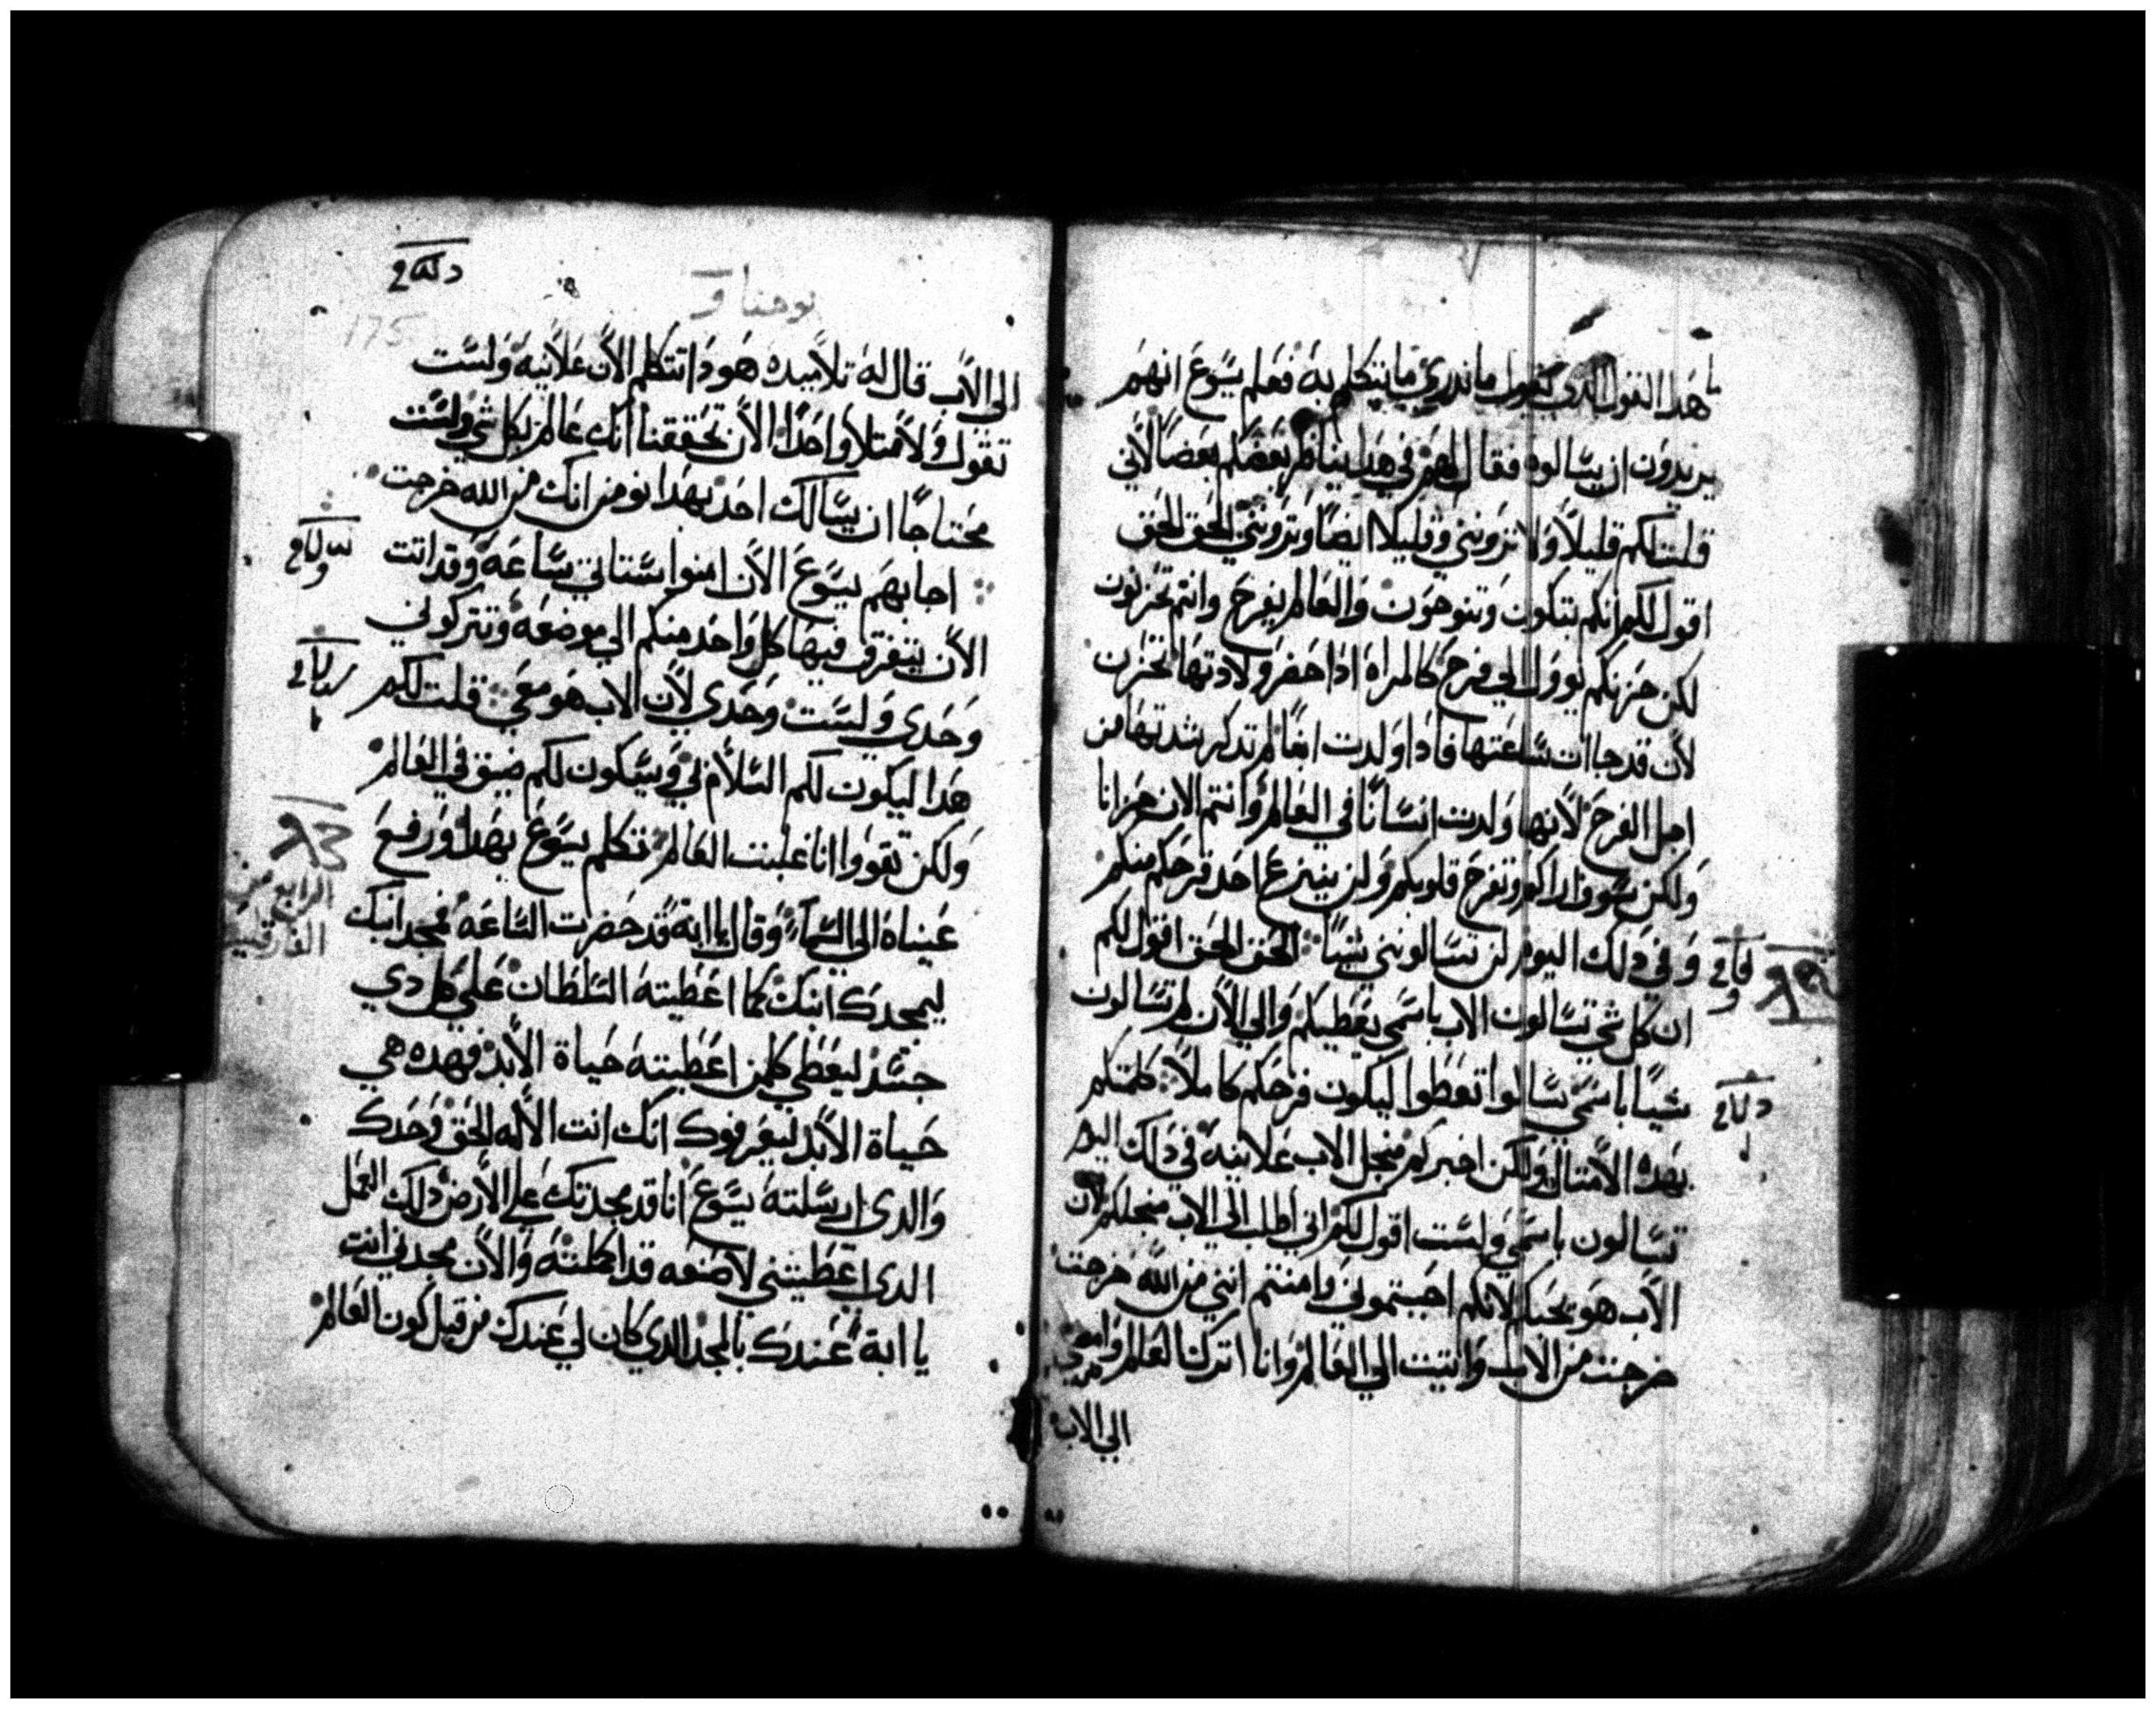 ما هدا القول الدي يقول ما ندري ما يتكلم به فعلم يسوع انهم
يريدون ان يسالوه فقال لهم في هدا يناظر بعضكم بعضا لاني
قلت لكم قليلا ولا ترونني وقليلا ايضا وترونني الحق الحق
اقول لكم انكم تبكون وتنوحون والعالم يفرح وانتم تحزنون
لكن حزنكم يوول الي فرح كالمراه ادا حضر ولادتها تحزن
لان قد جاات ساعتها فادا ولدت ابنا لم تدكر شدتها من
اجل الفرح لانها ولدت انسانا في العالم وانتم الان حزانا
ولكن سوف اراكم وتفرح قلوبكم ولن ينزع احد فرحكم منكم
وفي دلك اليوم لن تسالونني شيا الحق الحق اقول لكم
ان كل شي تسالون الاب باسمي يعطيكم والي الان لم تسالون
شيا باسمي سالوا تعطوا ليكون فرحكم كاملا كلمتكم
بهده الامتال ولكن اخبركم منجل الاب علانيه في دلك اليوم
تسالون باسمي ولست اقول لكم اني اطلب الي الاب منجلكم لان
الاب هو يحبكم لانكم احببتموني وامنتم انني من الله خرجت
خرجت من الاب واتيت الي العالم وانا اترك العالم وامضي
الي الاب
يوحنا
175
الي الاب قال له تلاميده هودا تتكلم الان علانيه ولست
تقول ولا متلا واحدا الان تحققنا انك عالم بكل شي ولست
محتاجا ان يسالك احد بهدا نومن انك من الله خرجت
اجابهم يسوع الان امنوا ستاتي ساعه وقد اتت
الان يتفرق فيها كل واحد منكم الي موضعه وتتركوني
وحدي ولست وحدي لان الاب هو معي قلت لكم
هدا ليكون لكم السلام في وسيكون لكم ضيق في العالم
ولكن تقووا انا غلبت العالم تكلم يسوع بهدا ورفع
عيناه الي السماء وقال يا ابة قد حضرت الساعه فمجد ابنك
ليمجدك ابنك كما اعطيته السلطان علي كل دي
جسد ليعطي كلمن اعطيته حياة الابد فهده هي
حياة الابد ليعرفوك انك انت الاله الحق وحدك
والدي ارسلته يسوع انا قد مجدتك علي الارض دلك العمل
الدي اعطيتني لاصنعه قد اكملته والان مجدني انت
يا ابة عندك بالمجد الدي كان لي عندك من قبل كون العالم
الرابع من